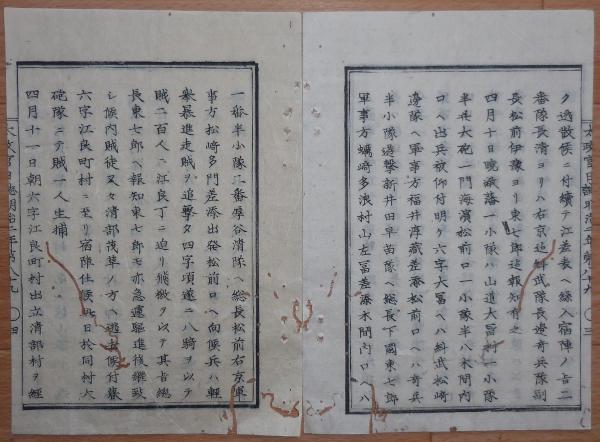 ク逃散候ニ付續テ江差表ヘ繰入宿陣ノ旨二
番隊長清ヨリハ右京近糾武隊長邉奇兵隊副
長松前伊豫ヨリ東七郎迄報知有之
四月十日曉城藩一小隊ハ山道大冨村一小隊
半并大砲一門海濱松前口一小隊半ハ木間内
口ヘ出兵被仰付明ケ六字大冨ヘハ糾武松崎
邉隊ヘ軍事方福井淳藏差添松前口ヘハ奇兵
半小隊遊撃新井田早苗隊ヘ總長下國東七郎
軍事方蠣崎多浪村山左冨差添木間内口ヘハ
太政官日誌明治二年第八十九 ○三
一番半小隊二番厚谷清隊ヘ總長松前右京軍
事方松崎多門差添出發松前口ヘ向候兵ハ輕
暴進走賊ヲ追撃夕四字頃遠二八騎ヲ以テ
賊二百人ニ江良丁ニ迫リ飛檄ヲ以テ其旨總
長東七郎ヘ報知東七郎モ亦急遽驅進後繼致
シ候内賊徒又々清部茂草ノ方ヘ逃去候付暮
六字江良町村ニ至リ宿陣仕候此日於同村大
砲隊ニテ賊一人生捕
四月十一日朝六字江良町村出立清部村ヲ經
太政官日誌明治二年第八十九 ○四